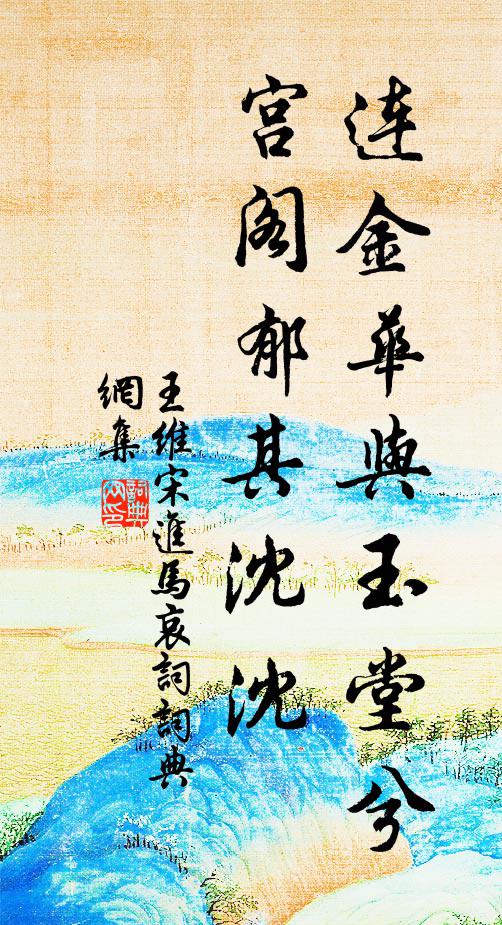 连金華與玉堂兮
宫阁郁其沈沈
王維宋進馬哀詞詞典
網集
詞典